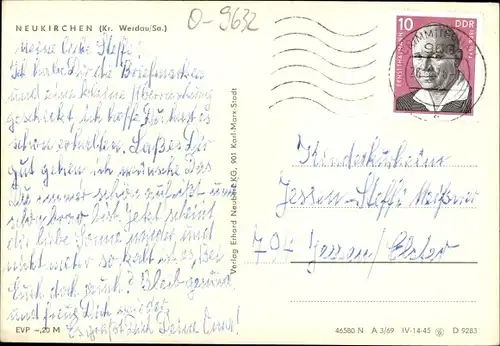 NEUKIRCHEN (Kr. Werdau/Sa.)
O-9632
Meine liebe Steffi!
Ich habe Dir die Briefmarken
und eine kleine Überraschung
geschickt, ich hoffe Du hast es
schon erhalten. Laß es Dir
gut gehen ich wünsche Das
Du immer schön
bist. Jetzt scheint
die liebe Sonne wieder und
nicht mehr so kalt ist es, Bei
Euch doch auch? Bleib gesund
und freue Dich wieder
Es grüßt Dich Deine Oma!
10
DDR
ERNST THÄLMANN
Kinderkurheim
Jessen - Steffi Meißner
Jessen/Elster
Verlag Erhard Neubert KG, 901 Karl-Marx-Stadt
EVP -,20 M
46580 N A 3/69 IV-14-45 D 9283